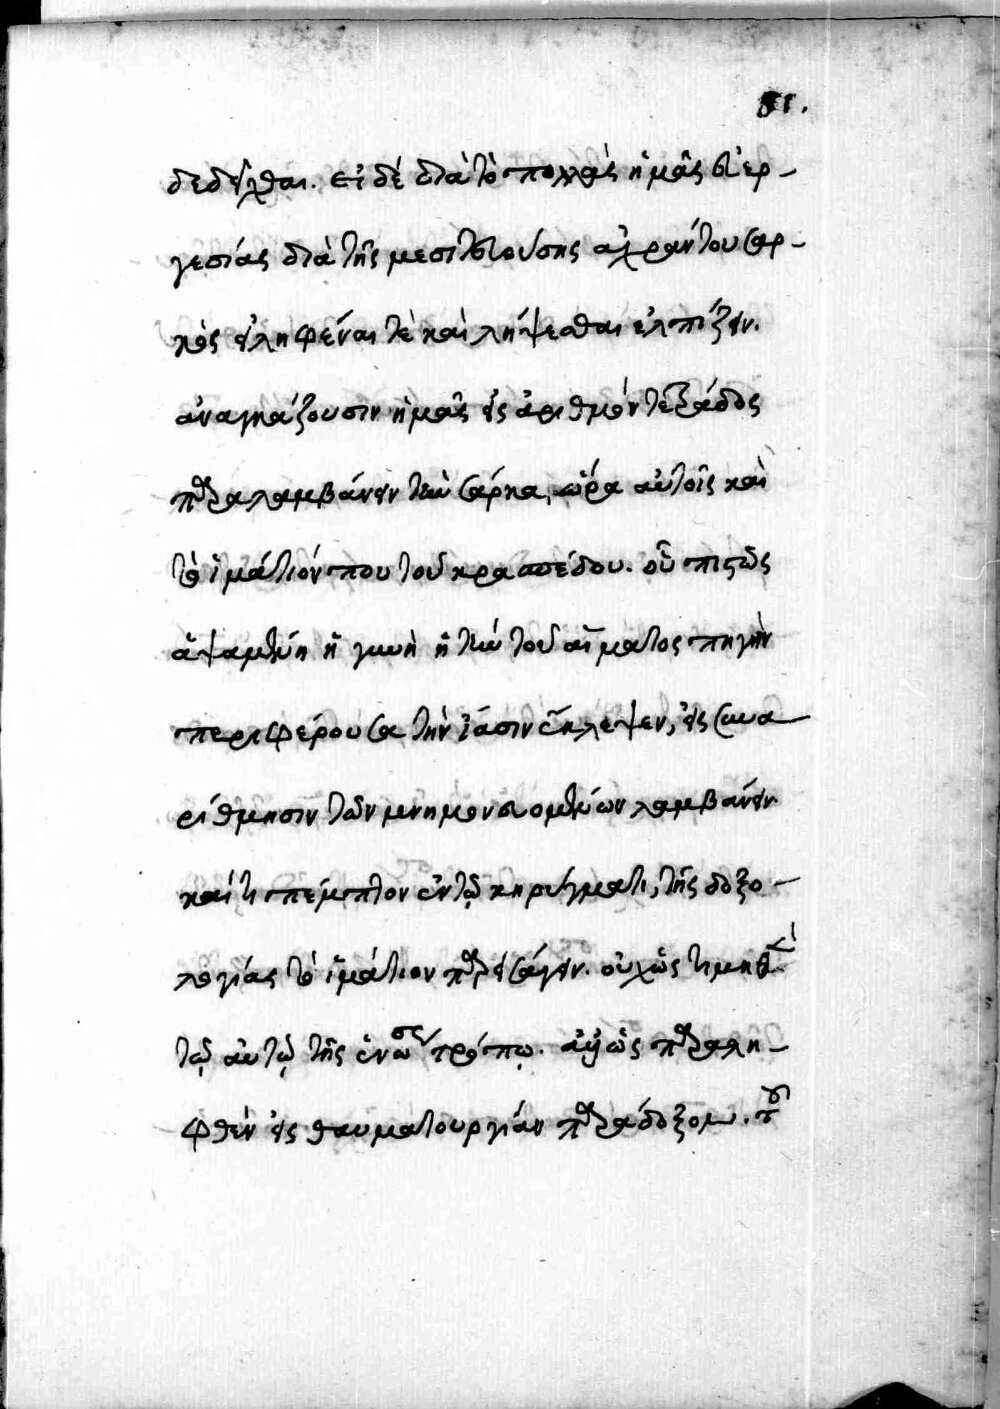 51.
δεδεῖχθαι. εἰ δέ διὰ τὸ πολλὰς ἡμᾶς εὐερ-
γεσίας διὰ τῆς μεσιτευούσης ἀχράντου σαρ-
κὸς εἰληφέναι τὲ καὶ λήψεσθαι ἐλπίζειν.
ἀναγκάζουσιν ἡμᾶς εἰς ἀριθμὸν τετράδος
παραλαμβάνειν τὴν σάρκα, ὥρα αὐτοῖς καὶ
τὸ ἱμάτιόν που τοῦ κρασπέδου. οὗ πιστῶς
ἁψαμένη ἡ γυνὴ ἡ τὴν τοῦ αἵματος πηγὴν
περιφέρουσα τὴν ἴασιν ἔκλεψεν, εἰς συνα-
ρίθμησιν τῶν μνημονευομένων λαμβάνειν
καί τι πέμπτον ἐν τῷ κηρύγματι, τῆς δοξο-
λογίας τὸ ἱμάτιον παρεισάγειν. οὐχ ὡς τιμηθὲν
τῷ αὐτῷ τῆς ἑνώσεως τρόπῳ. ἀλλ' ὡς παραλη-
φθὲν εἰς θαυματουργίαν παράδοξον. τοῦ